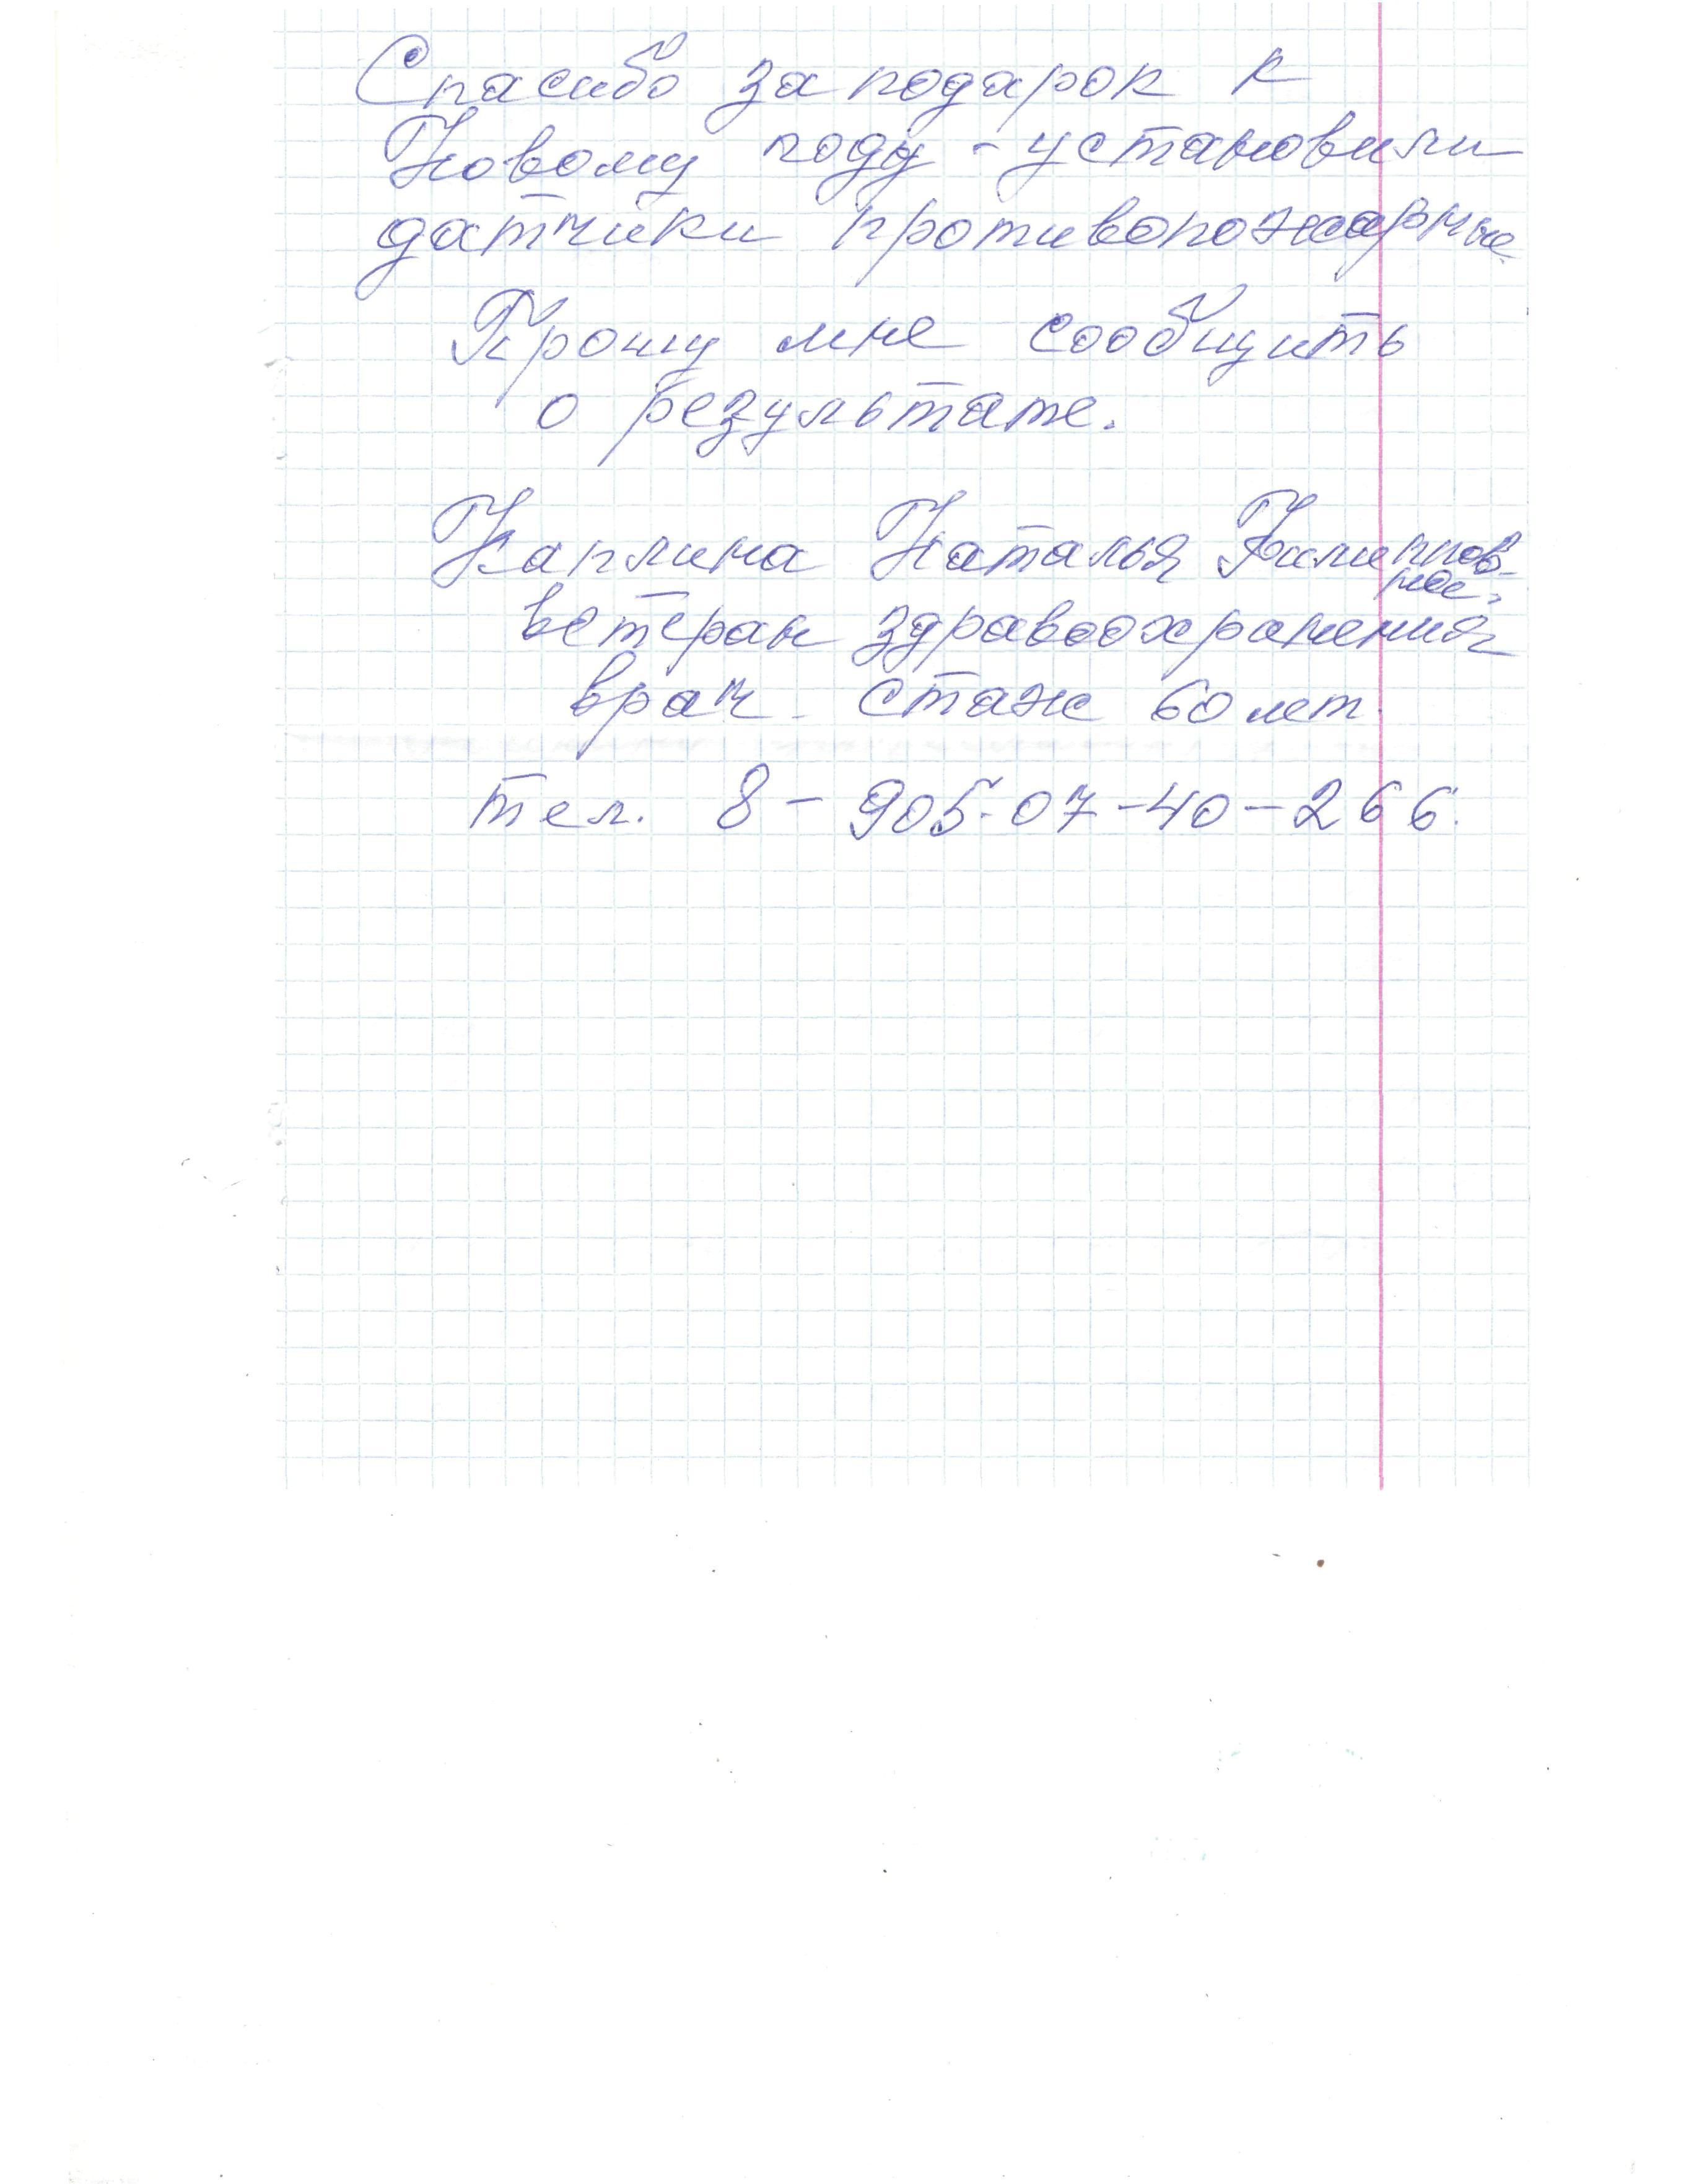 Спасибо за подарок к
Новому году - установили
датчики противопожарные
Прошу мне сообщить
о результате.
Каплина Наталья Филиппов-
на,
ветеран здравоохранения
врач. стаж 60 лет.
тел. 8-905-07-40-266.